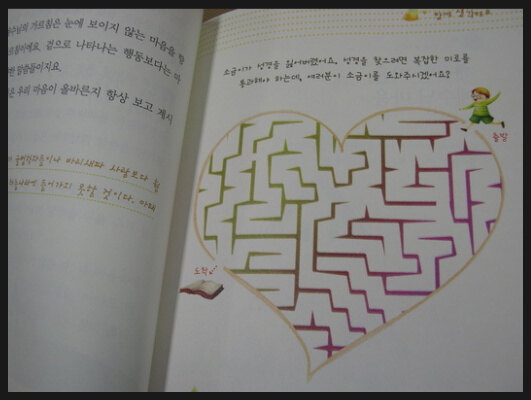 수님의 가르침은 눈에 보이지 않는 마음을 향
겉으로 나타나는 행동보다는 마
말씀들이지요.
은 우리 마음이 올바른지 항상 보고 계시
바리새파 사람보다 훨
들어가지 못할 것이다. 마태
함께 생각해요
소금이가 성경을 잃어버렸어요. 성경을 찾으려면 복잡한 미로를
통과해야 하는데, 여러분이 소금이를 도와주시겠어요?
출발
도착